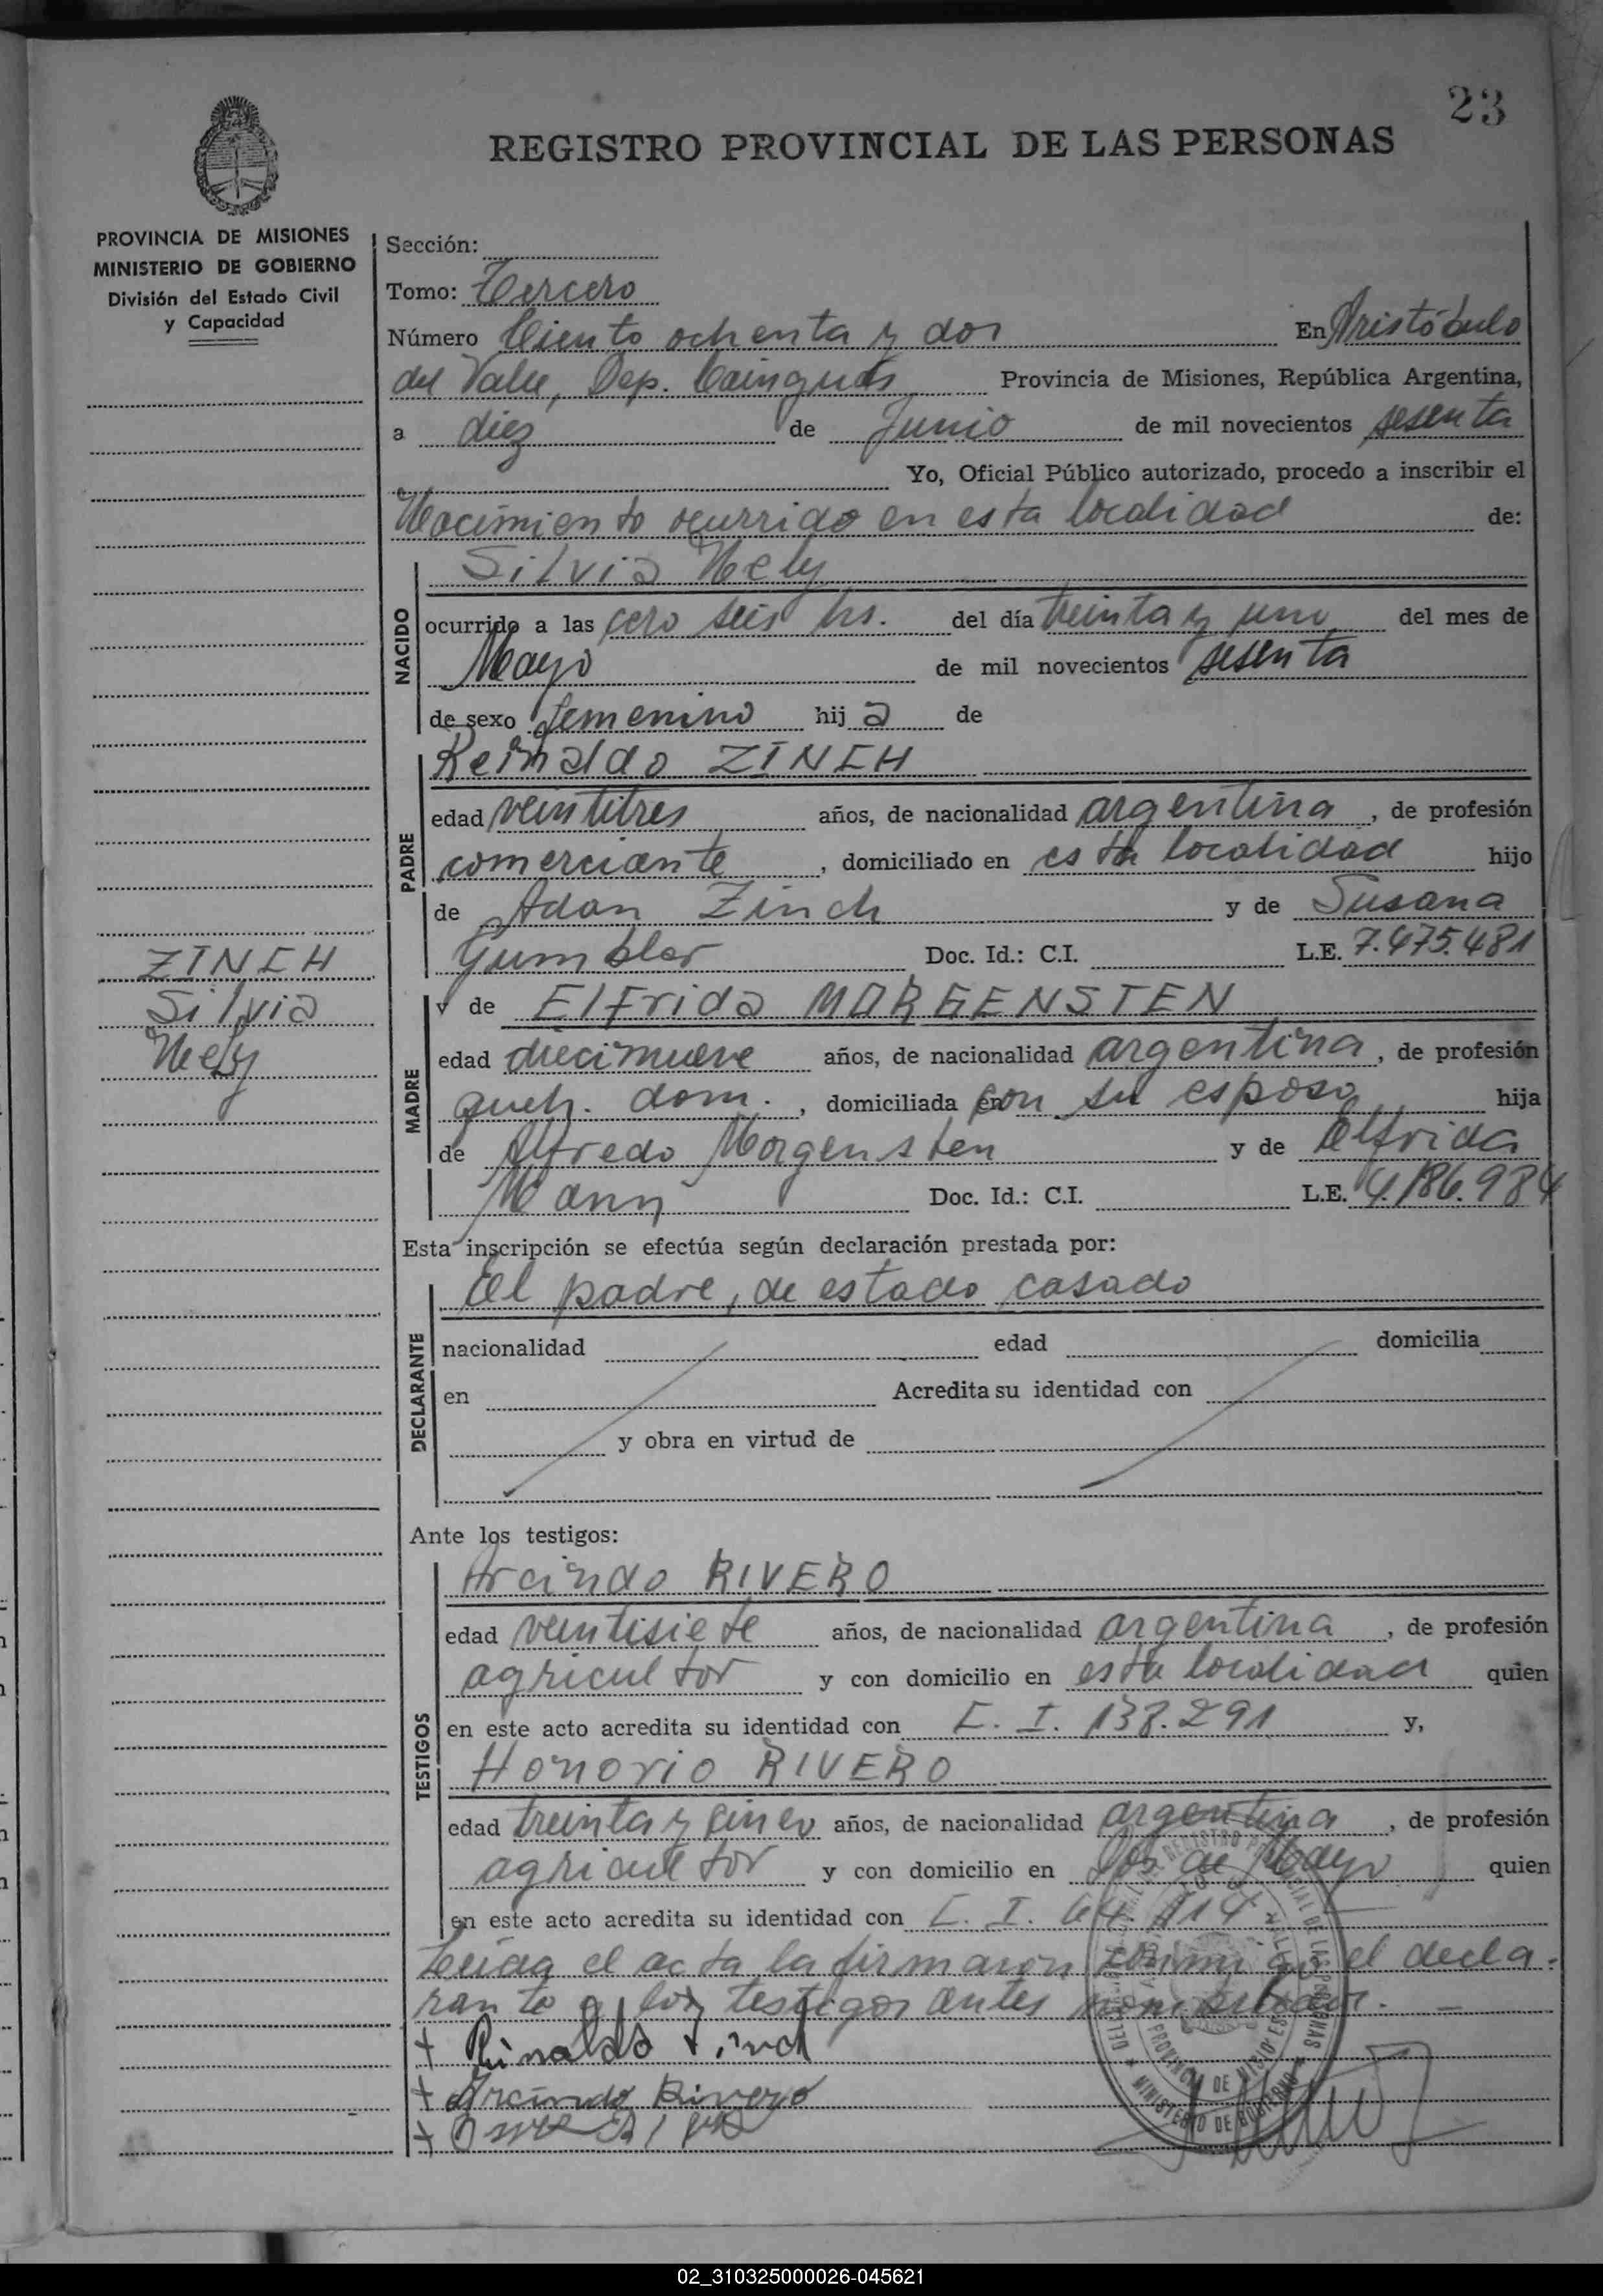 23
REGISTRO PROVINCIAL DE LAS PERSONAS
PROVINCIA DE MISIONES
MINISTERIO DE GOBIERNO
División del Estado Civil
y Capacidad
Sección:
Tomo: Tercero
Número Ciento ochenta y dos En Aristóbulo
del Valle, Dep. Cainguás Provincia de Misiones, República Argentina,
a diez de Junio de mil novecientos sesenta
Yo, Oficial Público autorizado, procedo a inscribir el
Nacimiento ocurrido en esta localidad de:
NACIDO
Silvia Nely
ocurrido a las cero seis hs. del día treinta y uno del mes de
Mayo de mil novecientos sesenta
de sexo femenino hija de
PADRE
Reinaldo ZINCH
edad veintitres años, de nacionalidad argentina, de profesión
comerciante, domiciliado en esta localidad hijo
de Adan Zinch y de Susana
Gumbler Doc. Id.: C.I. L.E. 7.475.481
ZINCH
Silvia
Nely
MADRE
y de Elfrida MORGENSTEN
edad diecinueve años, de nacionalidad argentina, de profesión
queh. dom., domiciliada en con su esposo hija
de Alfredo Morgensten y de Elfrida
Mann Doc. Id.: C.I. L.E. 4.186.984
Esta inscripción se efectúa según declaración prestada por:
DECLARANTE
El padre, de estado casado
nacionalidad edad domicilia
en Acredita su identidad con
y obra en virtud de
Ante los testigos:
TESTIGOS
Arcindo RIVERO
edad veintisiete años, de nacionalidad argentina, de profesión
agricultor y con domicilio en esta localidad quien
en este acto acredita su identidad con C. I. 138.291 y,
Honorio RIVERO
edad treinta y cinco años, de nacionalidad argentina, de profesión
agricultor y con domicilio en Dos de Mayo quien
en este acto acredita su identidad con C. I. 64.114
Leida el acta la firmaron conmigo el decla-
rante y los testigos antes nombrados.
+ Rinaldo Zinch
+ Arcindo Rivero
+
MINISTERIO DE GOBIERNO
PROVINCIA DE MISIONES
02_310325000026-045621